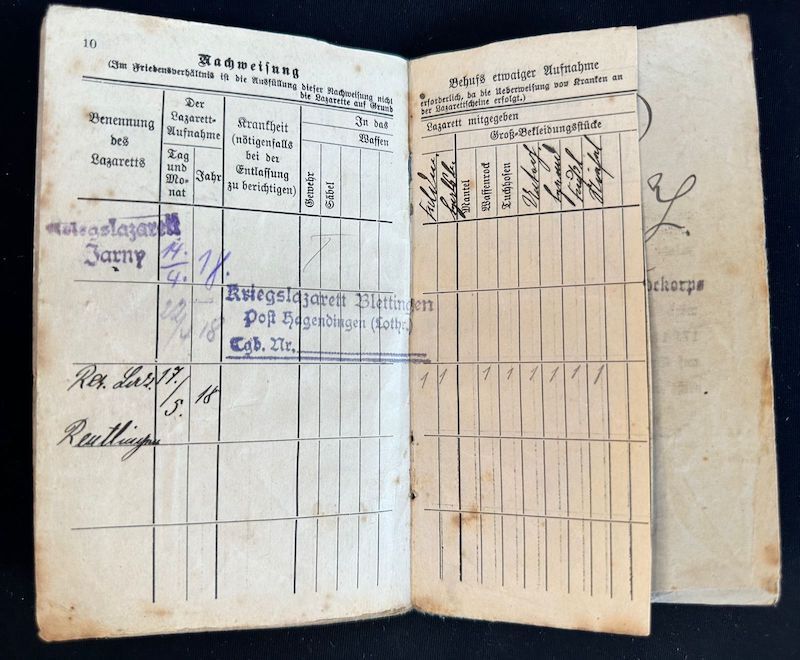 10
Nachweisung
(Im Friedensverhältnis ist die Ausfüllung dieser Nachweisung nicht
die Lazarette auf Grund
Benennung
des
Lazaretts
Der
Lazarett-
Aufnahme
Tag
und
Mo-
nat
Jahr
Krankheit
(nötigenfalls
bei der
Entlassung
zu berichtigen)
In das
Waffen
Gewehr
Säbel
Kriegslazarett
Jarny
14.
4.
18.
Kriegslazarett Blettingen
Post Hagendingen (Lothr.)
Tgb. Nr.
22
18
Res. Laz.
17.
5.
18
Reutlingen
Behufs etwaiger Aufnahme
erforderlich, da die Ueberweisung von Kranken an
der Lazarettscheine erfolgt.)
Lazarett mitgegeben
Groß-Bekleidungsstücke
Mantel
Waffenrock
Tuchhosen
1 1 1 1 1 1 1 1 1
korps